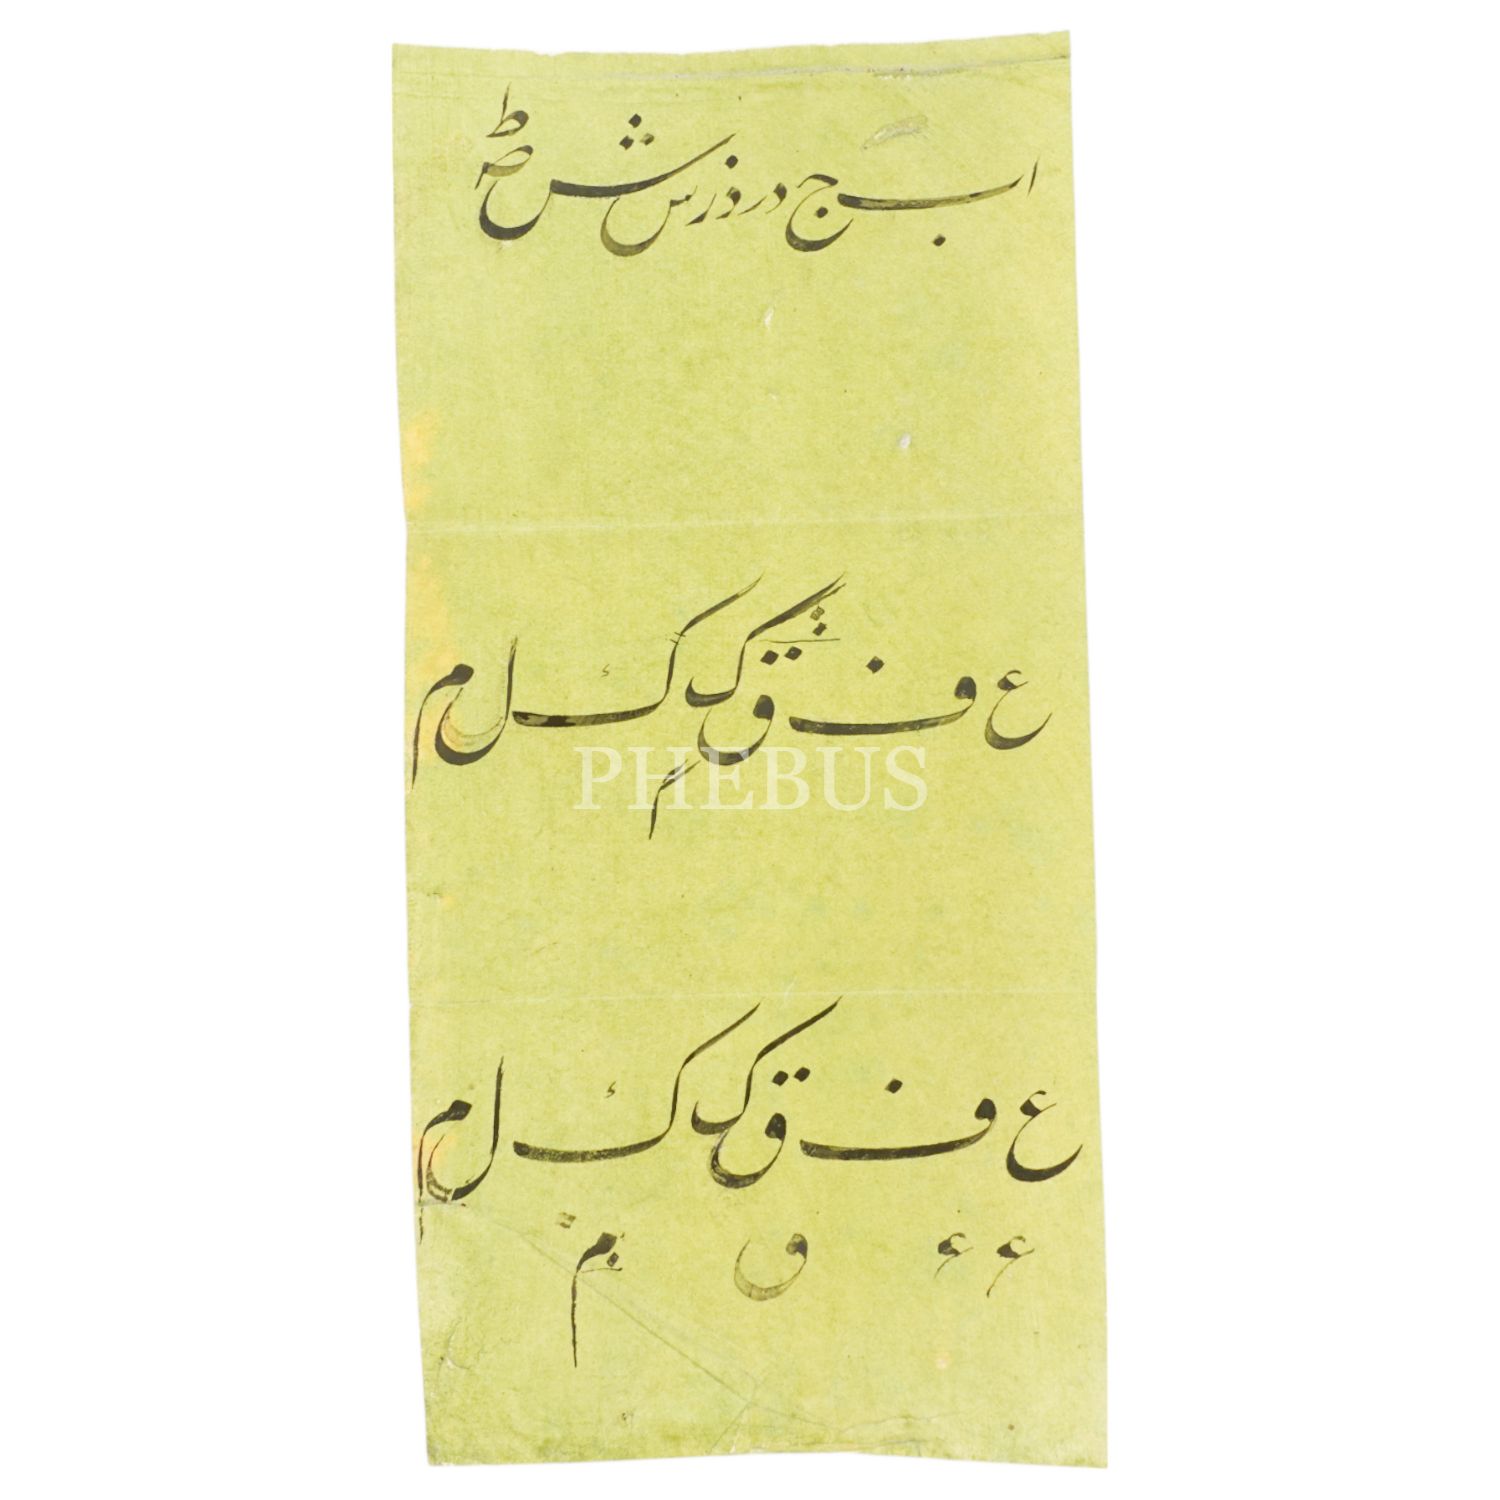 ا ب ج د ر ذ ز س ش ص ط
ع ف ق ک ك ل م
م
PHEBUS
ع ف ق ک ك ل م
ء ء و م